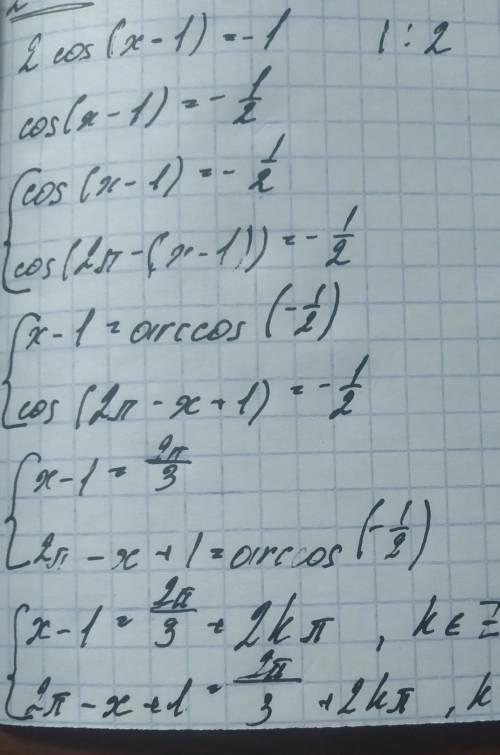 2 cos(x-1) = -1 | : 2
cos(x-1) = -1/2
{ cos(x-1) = -1/2
cos(2π-(x-1)) = -1/2
{ x-1 = arccos(-1/2)
cos(2π-x+1) = -1/2
{ x-1 = 2π/3
2π-x+1 = arccos(-1/2)
{ x-1 = 2π/3 + 2kπ , k∈Z
2π-x+1 = 2π/3 + 2kπ , k